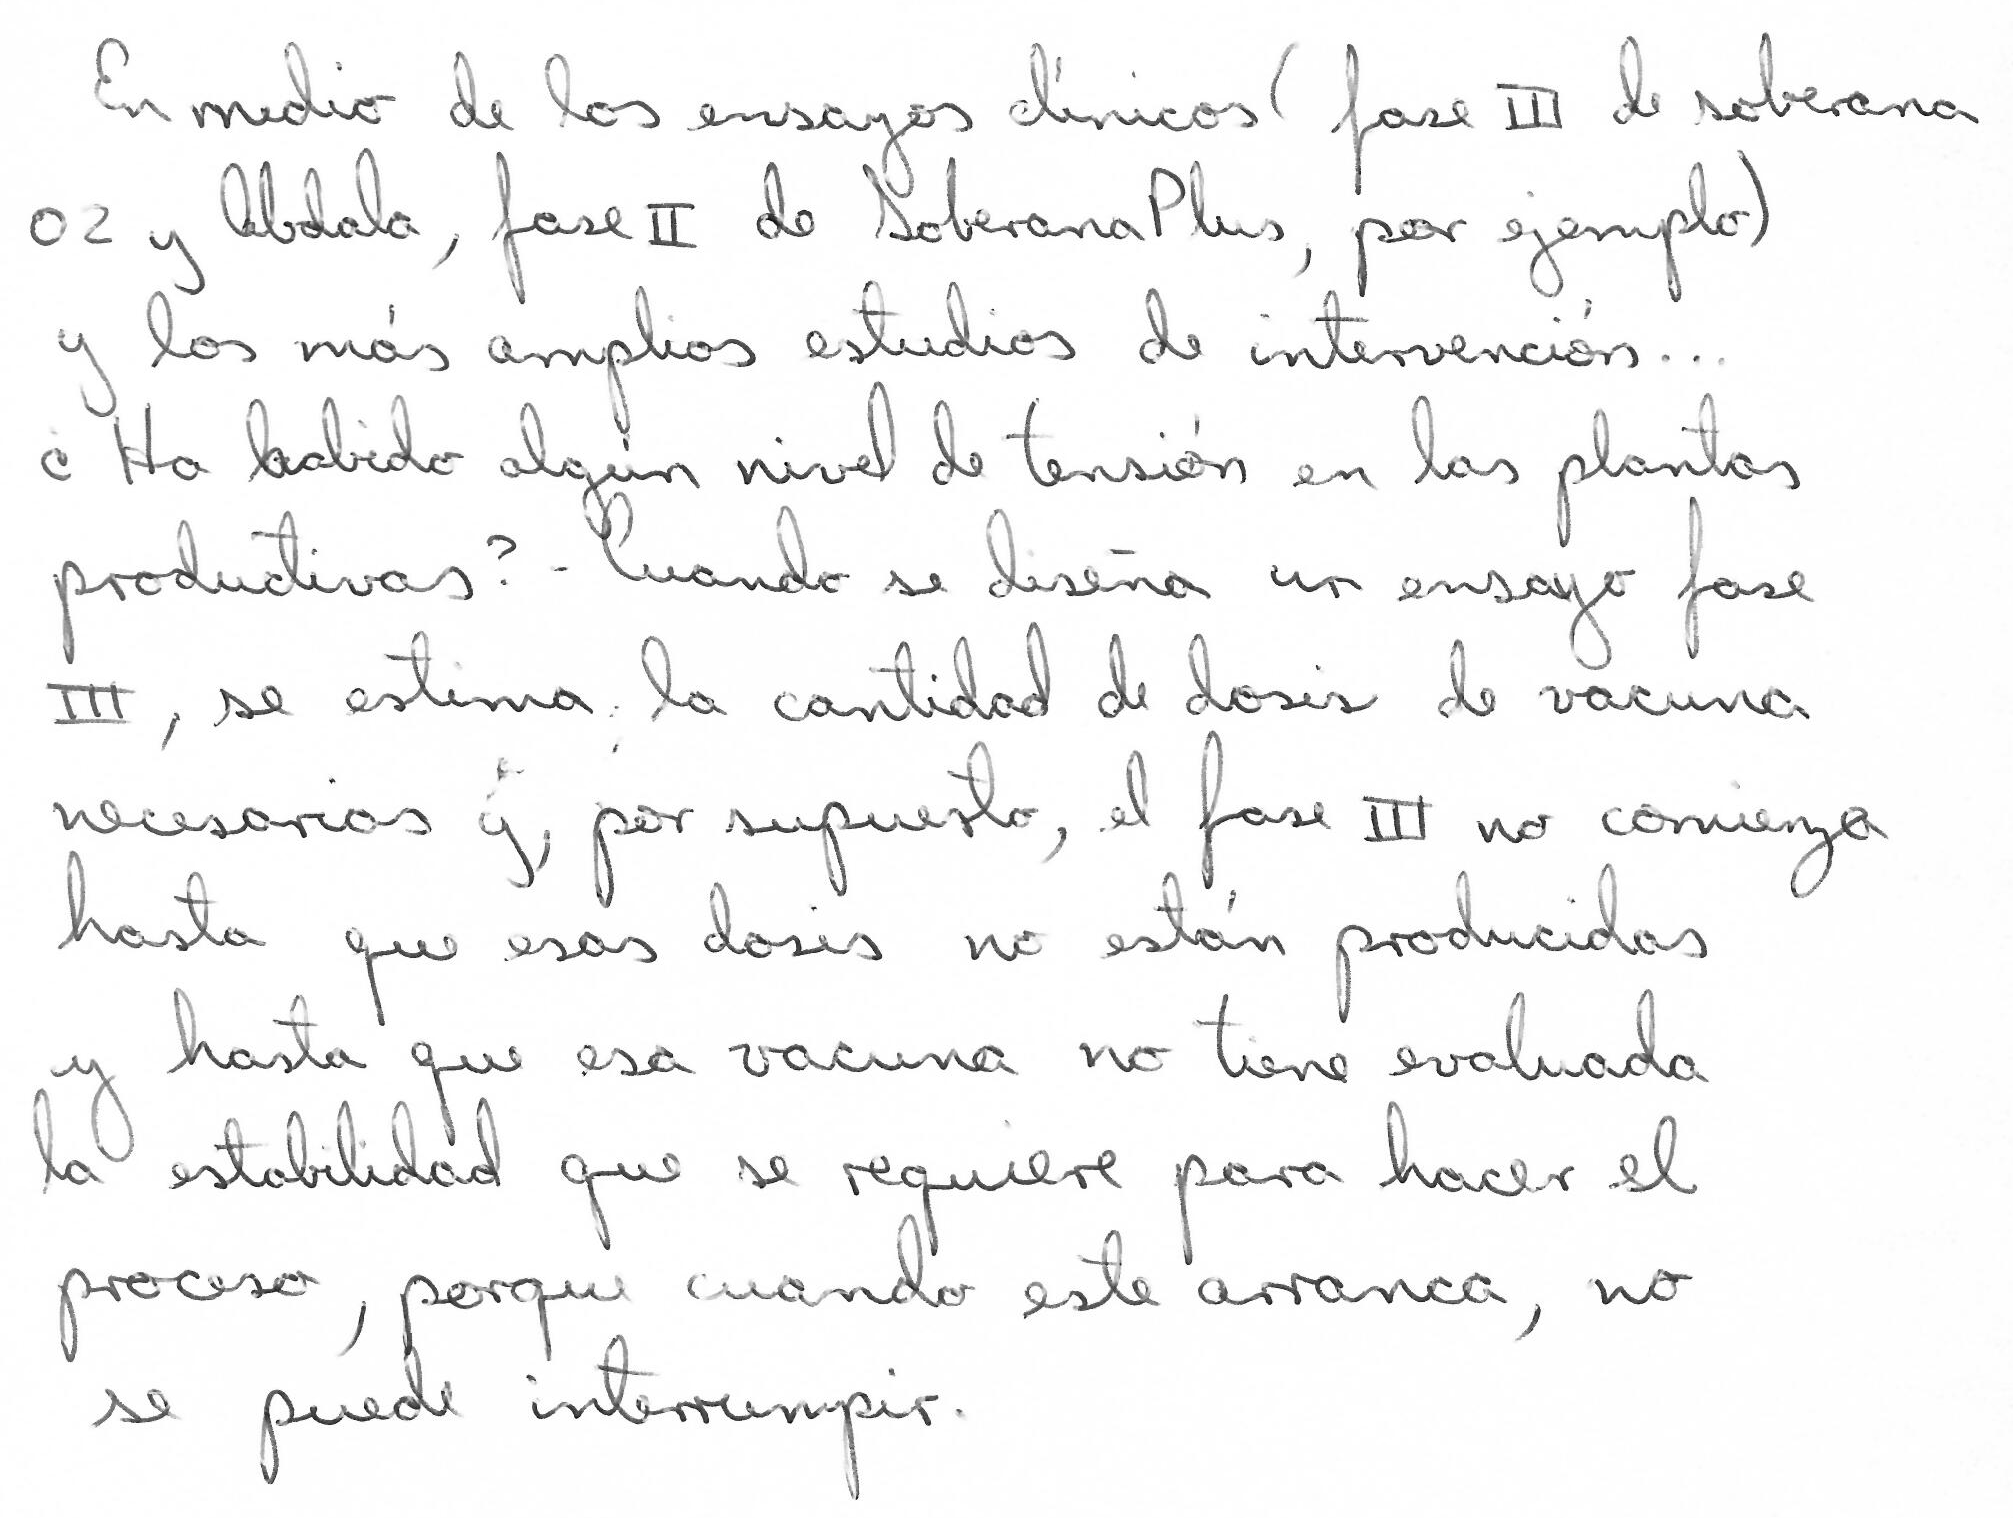 En medio de los ensayos clínicos (fase III de soberana
02 y Abdala, fase II de Soberana Plus, por ejemplo)
y los más amplios estudios de intervención...
¿Ha habido algún nivel de tensión en las plantas
productivas? - Cuando se diseña un ensayo fase
III, se estima la cantidad de dosis de vacuna
necesarias y, por supuesto, el fase III no comienza
hasta que esas dosis no están producidas
y hasta que esa vacuna no tiene evaluada
la estabilidad que se requiere para hacer el
proceso, porque cuando este arranca, no
se puede interrumpir.